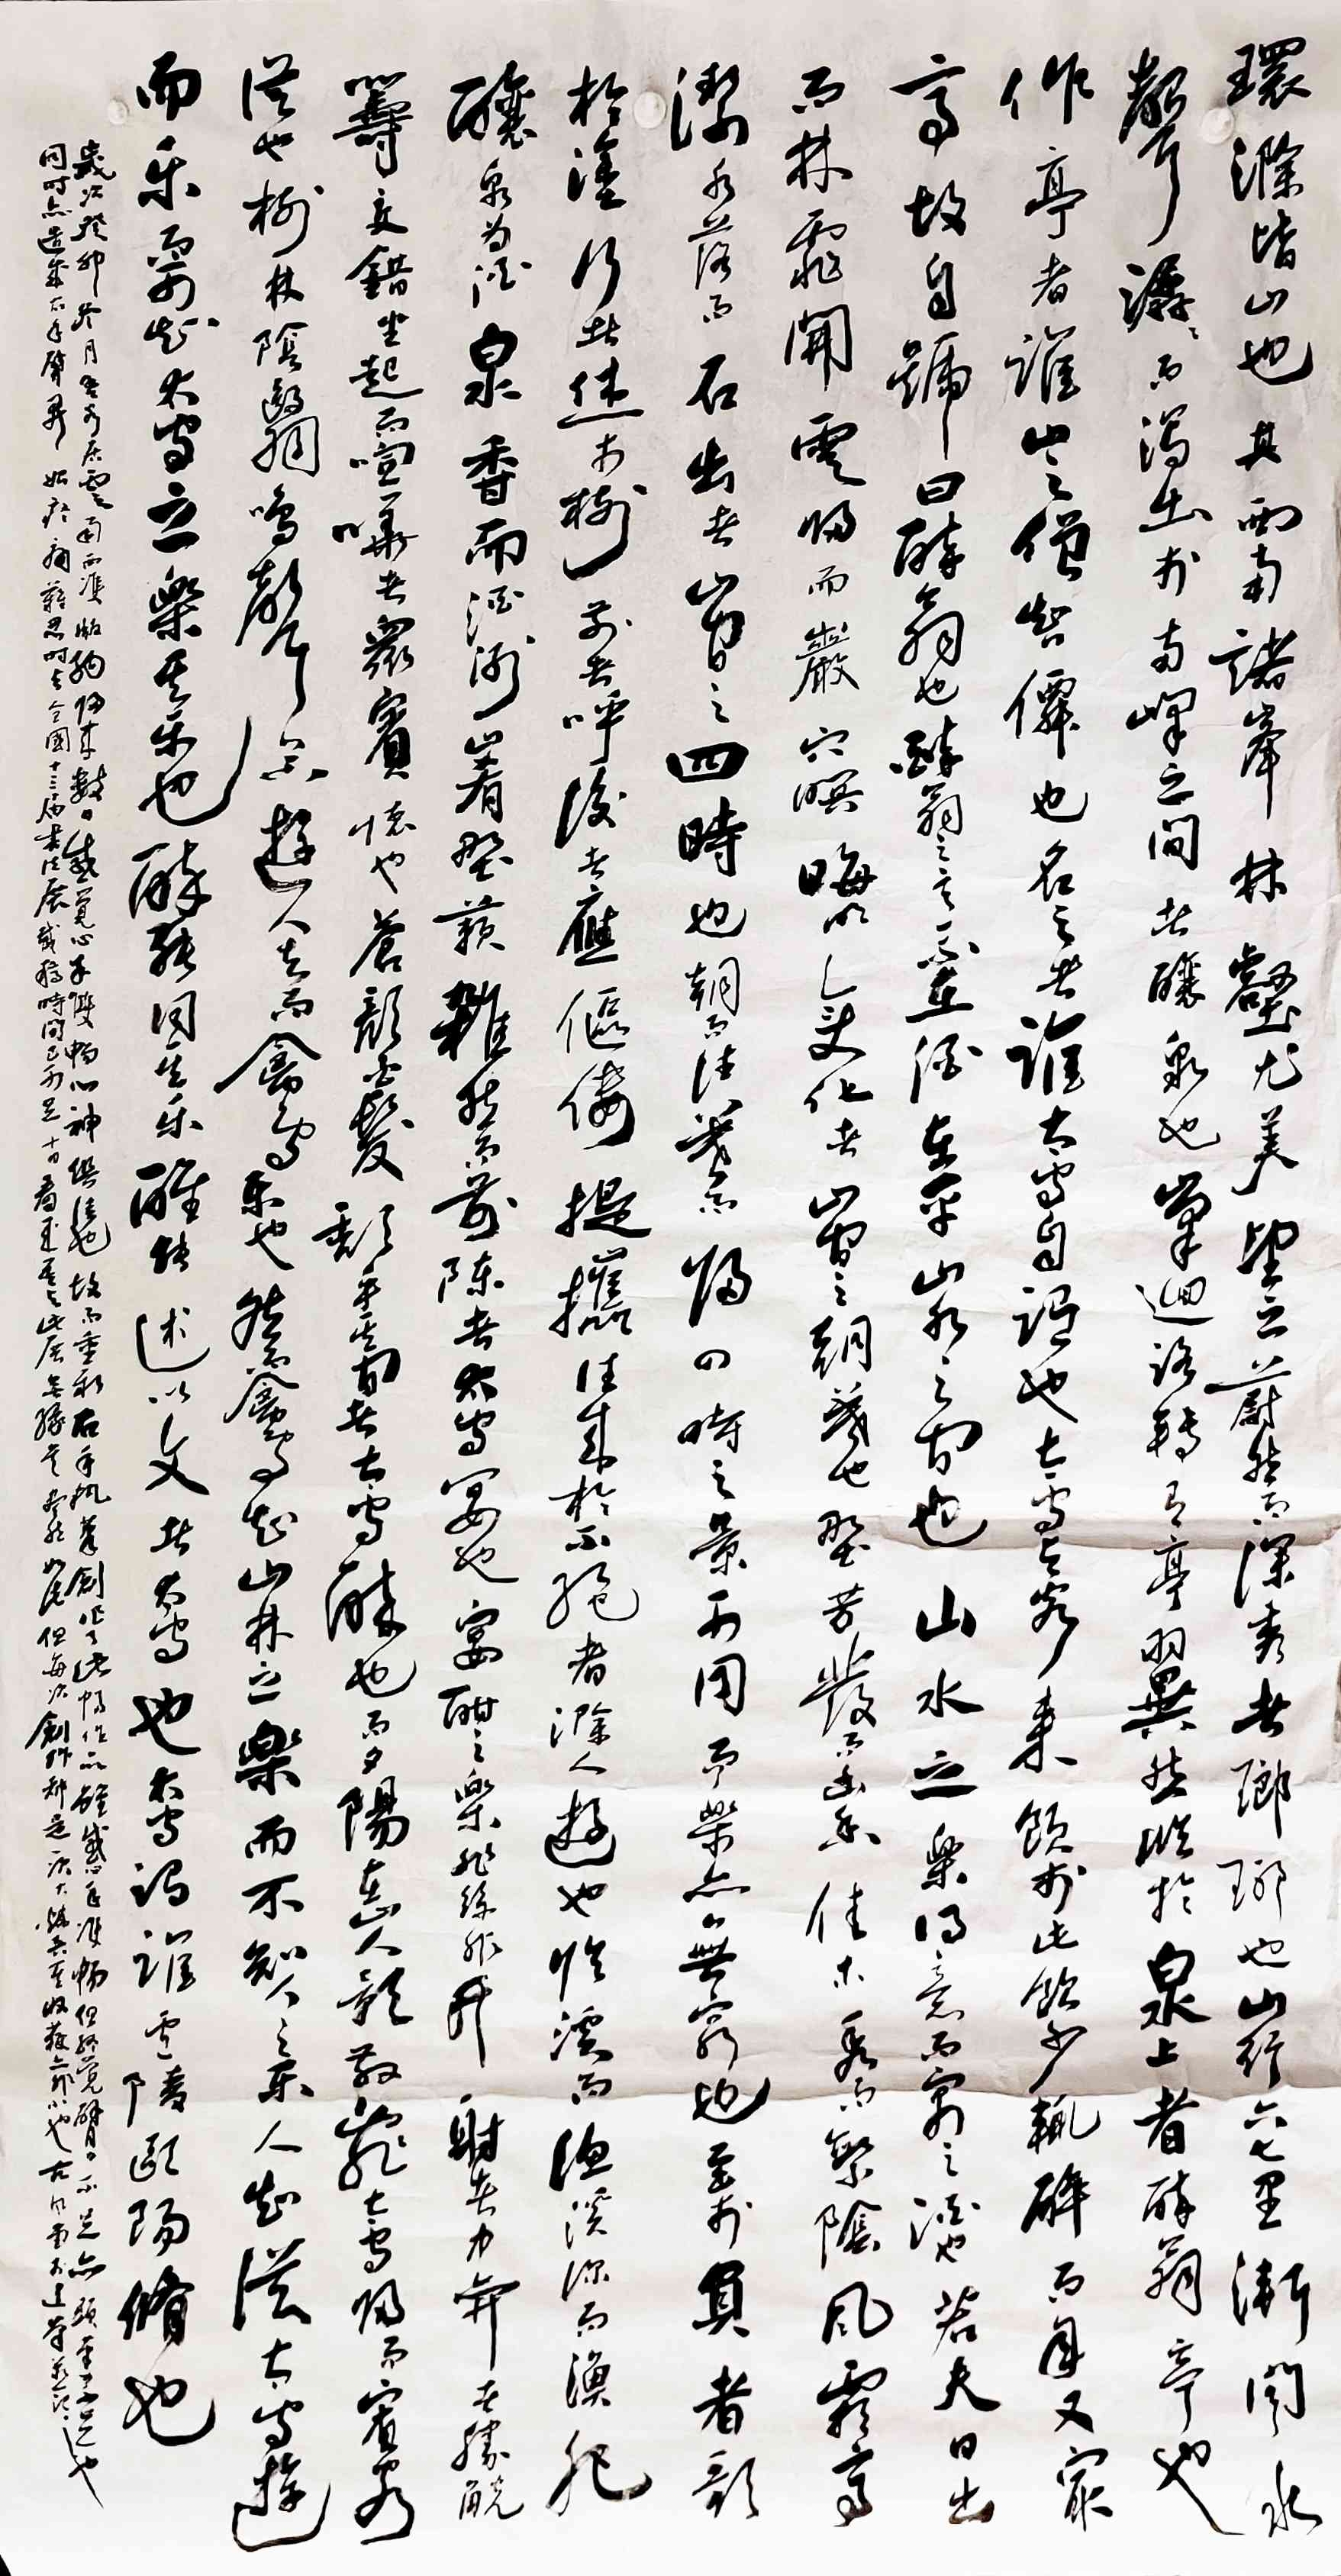 環滁皆山也其西南諸峯林壑尤美望之蔚然而深秀者瑯琊也山行六七里漸聞水
聲潺〻而瀉出於兩峰之間者釀泉也峯迴路轉有亭翼然臨於泉上者醉翁亭也
作亭者誰山之僧智僊也名之者誰太守自謂也太守與客來飲於此飲少輒醉而年又最
高故自號曰醉翁也醉翁之意不在酒在乎山水之間也山水之樂得之心而寓之酒也若夫日出
而林霏開雲歸而巖穴暝晦明變化者山間之朝暮也野芳發而幽香佳木秀而繁陰風霜高
潔水落而石出者山間之四時也朝而往暮而歸四時之景不同而樂亦無窮也至於負者歌
於塗行者休於樹前者呼後者應傴僂提攜往來於不絕者滁人遊也臨溪而漁溪深而漁肥
釀泉為酒泉香而酒洌山肴野蔌雜然而前陳者太守宴也宴酣之樂非絲非竹射者中弈者勝觥
籌交錯坐起而喧嘩者眾賓懽也蒼顏白髮頹乎其間者太守醉也而夕陽在山人影散亂太守歸而賓客
從也樹林陰翳鳴聲上下遊人去而禽鳥樂也然而禽鳥知山林之樂而不知人之樂人知從太守遊
而樂而不知太守之樂其樂也醉能同其樂醒能述以文者太守也太守謂誰廬陵歐陽脩也
歲次癸卯冬月 雲南 歸來數日感覺心手雙暢 神俱佳也故而重新右手執筆創作了此幅作品雖感手 暢但終覺 不足
同時 全國十三屆書法展截稿時間已不足十日 但每次創作都是一次